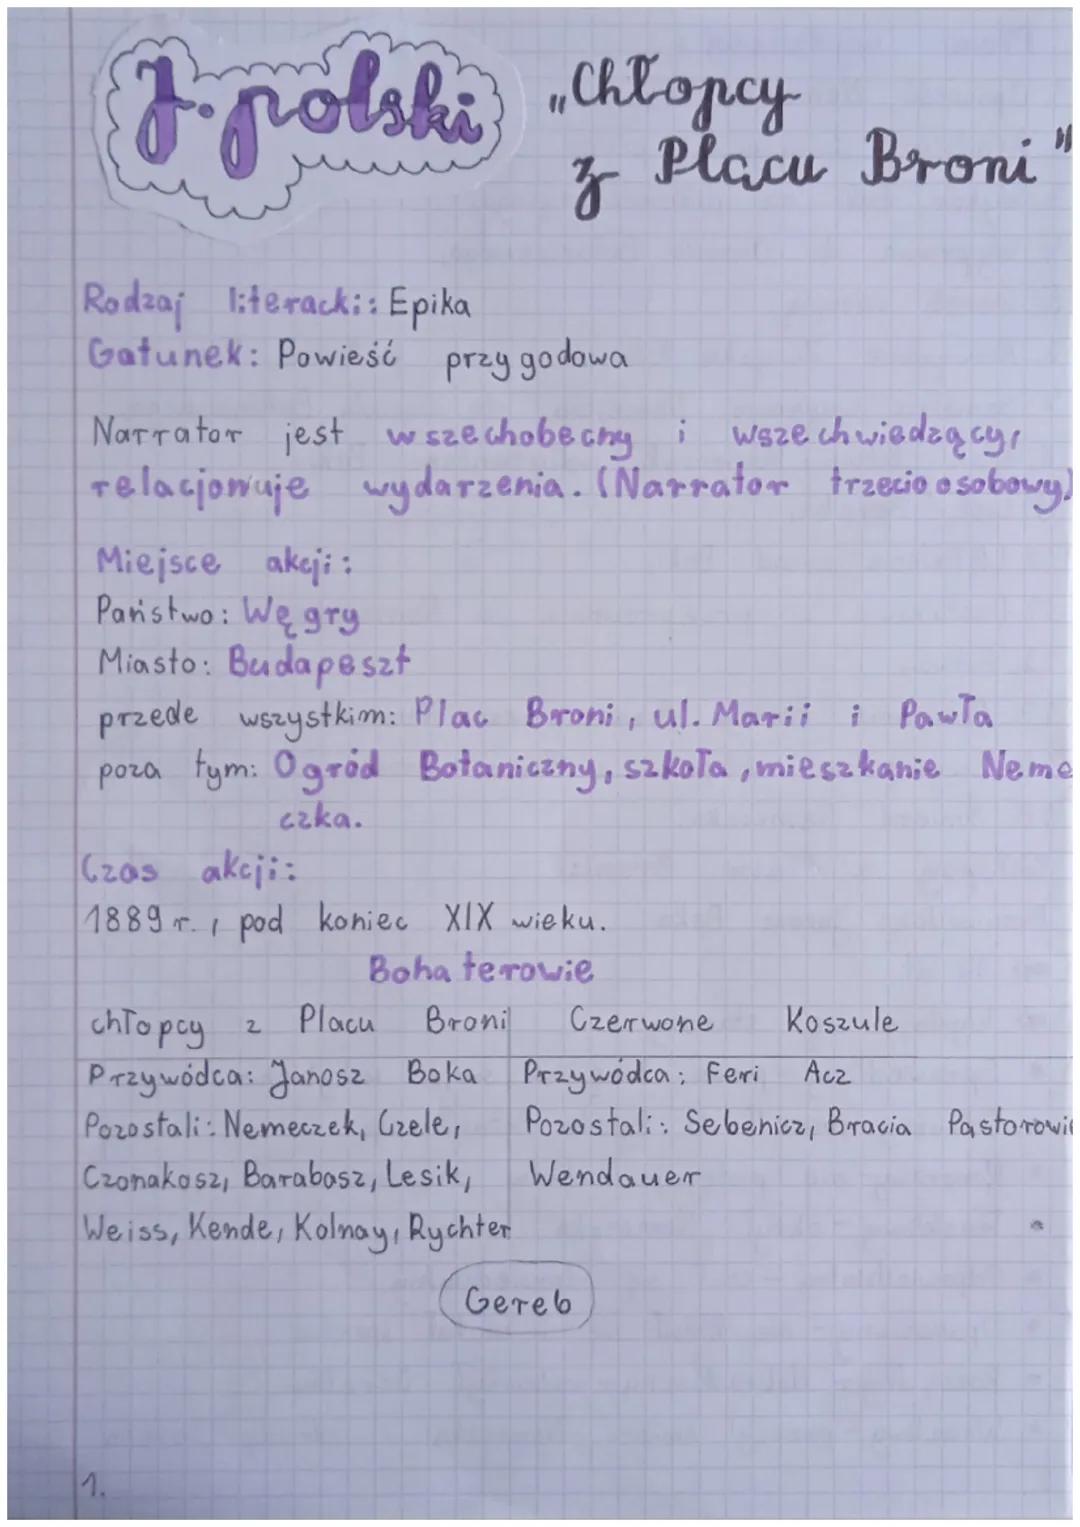 J. polski „Chłopcy
z Placu Broni"
Rodzaj literacki: Epika
Gatunek: Powieść przygodowa
Narrator jest wszechobecny i wszechwiedzący,
relacjonuje wydarzenia. (Narrator trzecioosobowy)
Miejsce akcji:
Państwo: Węgry
Miasto: Budapeszt
przede wszystkim: Plac Broni, ul. Marii i Pawła
poza tym: Ogród Botaniczny, szkoła, mieszkanie Neme
czka.
Czas akcji:
1889 r., pod koniec XIX wieku.
Bohaterowie
chłopcy z Placu Broni Czerwone Koszule
Przywódca: Janosz Boka Przywódca: Feri Acz
Pozostali: Nemeczek, Czele, Pozostali: Sebenicz, Bracia Pastorowie
Czonakosz, Barabasz, Lesik, Wendauer
Weiss, Kende, Kolnay, Rychter
Gereb
1.